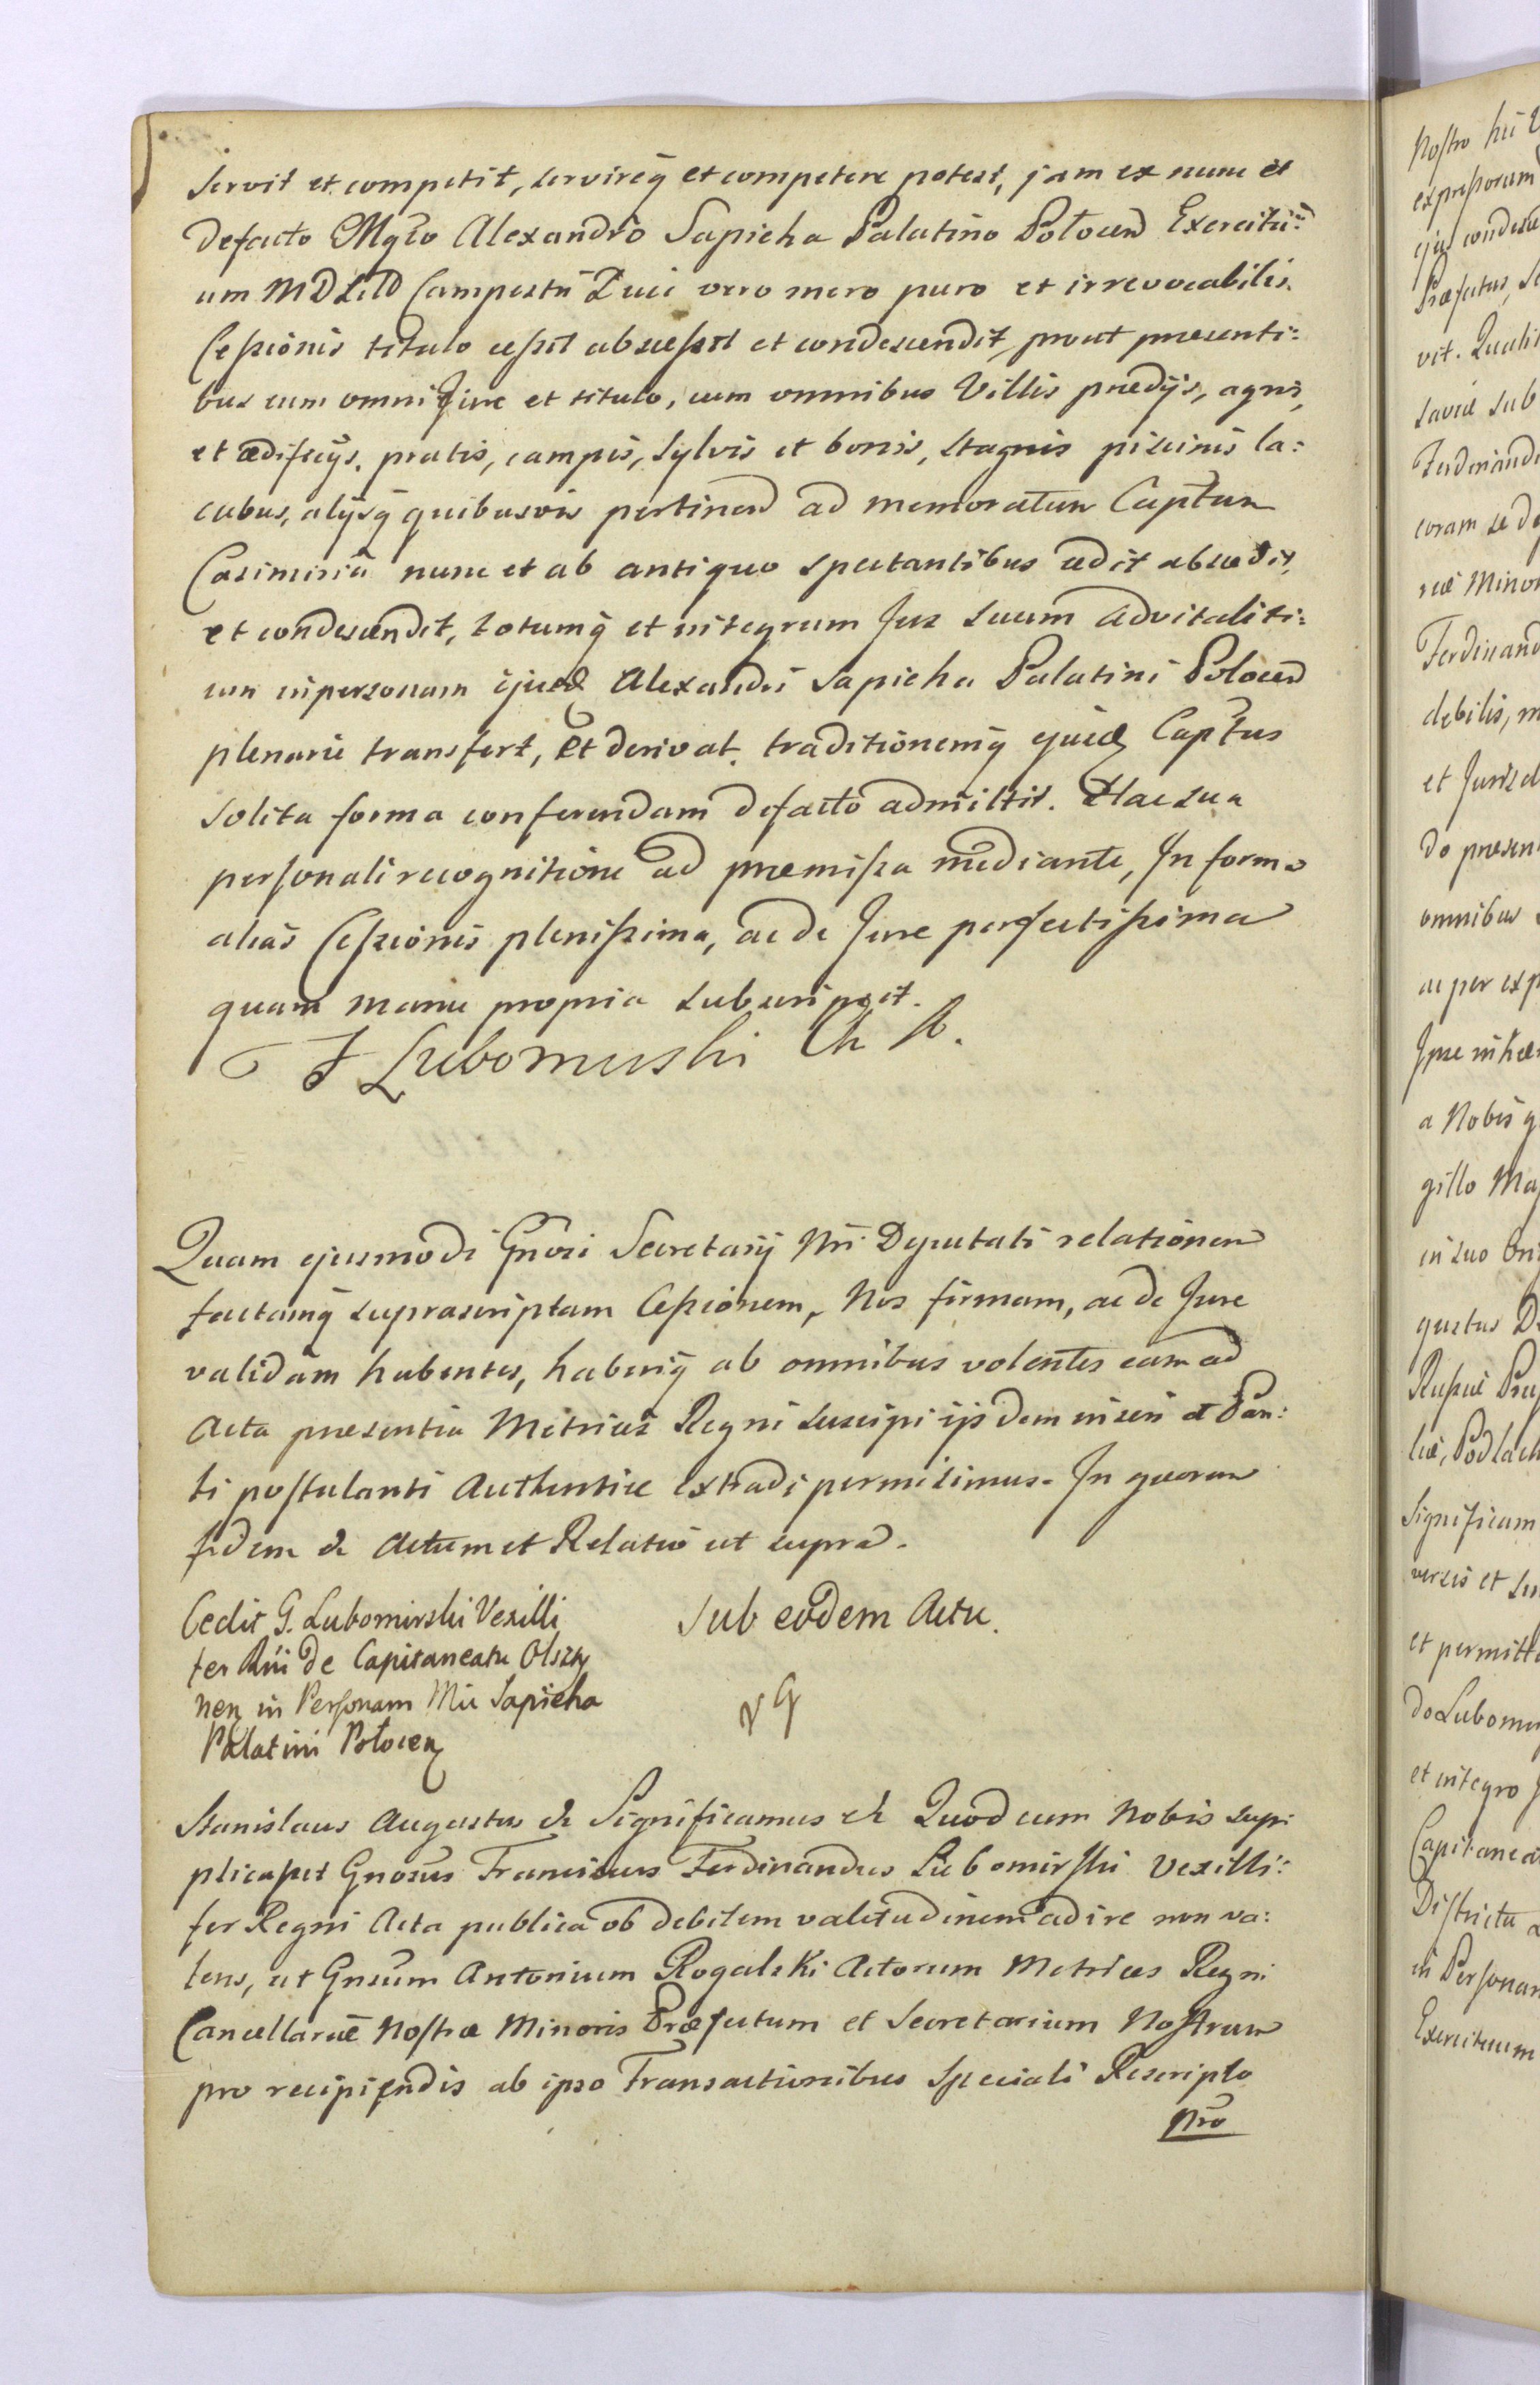 servit et competit, servireq̃ et competere potest, jam ex nunc et
defacto Mgco Alexandro Sapieha Palatino Połocen Exercitu:
um MDLitt Campestri Duci vero mero puro et irrevocabilis
Cessionis titulo cessit abscessit et condescendit, prout presenti:
bus cum omni Jure et titulo, cum omnibus Villis prædijs, agris,
et ædificijs, pratis, campis, sylvis et boris, stagnis piscinis la:
cubus, alijsq̃ quibusvis pertinen ad memoratum Captum
Casimirien nunc et ab antiquo spectantibus cedit abscedit,
et condescendit, totumq̃ et integrum Jus suum advitaliti:
um in personam ejusd Alexandri Sapieha Palatini Polocen
plenarie transfert, et derivat, traditionemq̃ ejusd Captus
solita forma conferendam defacto admittit. Hac sua
personali recognitione ad præmissa mediante, In forma
alias Cessionis plenissima, ac de Jure perfectissima
quam manu propria subscripsit.
F Lubomirski Ch K.
Quam ejusmodi Gnosi Secretarij Nri Deputati relationem
factamq̃ suprascriptam Cessionem, Nos firmam, ac de Jure
validam habentes, haberiq̃ ab omnibus volentes eam ad
Acta præsentia Metrices Regni suscipi ijsdem inseri et Par:
ti postulanti Authentice extradi permisimus. In quorum
fidem & Actum et Relatio ut supra.
Cedit G. Lubomirski Vexilli
fer Rni de Capitaneatu Olszty
nen in Personam Mci Sapieha
Palatini Połocen
Sub eodem Actu.
Stanislaus Augustus & Significamus & Quod cum Nobis sup:
plicasset Gnosus Franciscus Ferdinandus Lubomirski Vexilli:
fer Regni Acta publica ob debilem valetudinem adire non va:
lens, ut Gnsum Antonium Rogalski Actorum Metrices Regni
Cancellariæ Nostræ Minoris Præfectum et Secretarium Nostrum
pro recipiendis ab ipso Transactionibus speciali Rescripto
Nro